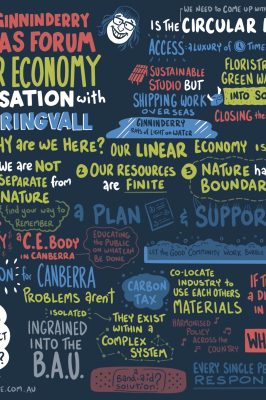 GINNINDERRY
AS FORUM
R ECONOMY
SATION with
RINGVALL
WE NEED TO COME UP WITH
IS THE CIRCULAR
ACCESS: A LUXURY OF TIME
SUSTAINABLE
STUDIO BUT
SHIPPING WORK
OVERSEAS
FLORIST
GREEN WA
INTO SO
CLOSING the
GINNINDERRY
RAYS OF LIGHT ON WATER
HY are WE HERE?
OUR LINEAR ECONOMY IS
WE ARE NOT
SEPARATE from
NATURE
2 OUR RESOURCES
are FINITE
3 NATURE ha
BOUNDAR
find your way to
REMEMBER
a PLAN & SUPPOR
A C.E. BODY
IN CANBERRA
EDUCATING
the PUBLIC
ON WHAT CAN
BE DONE
LET the GOOD COMMUNITY WORK BUBBLE
ON for CANBERRA
PROBLEMS aren't
ISOLATED
THEY EXIST
WITHIN A
COMPLEX
SYSTEM
CARBON
TAX
CO-LOCATE
INDUSTRY to
USE EACH OTHERS
MATERIALS
HARMONISED
POLICY
ACROSS the
COUNTRY
IF T
a D
IN
INGRAINED
INTO the
B.A.U.
CT
?
Band-aid?
SOLUTION?
EVERY SINGLE PE
RESPON
E.COM.AU